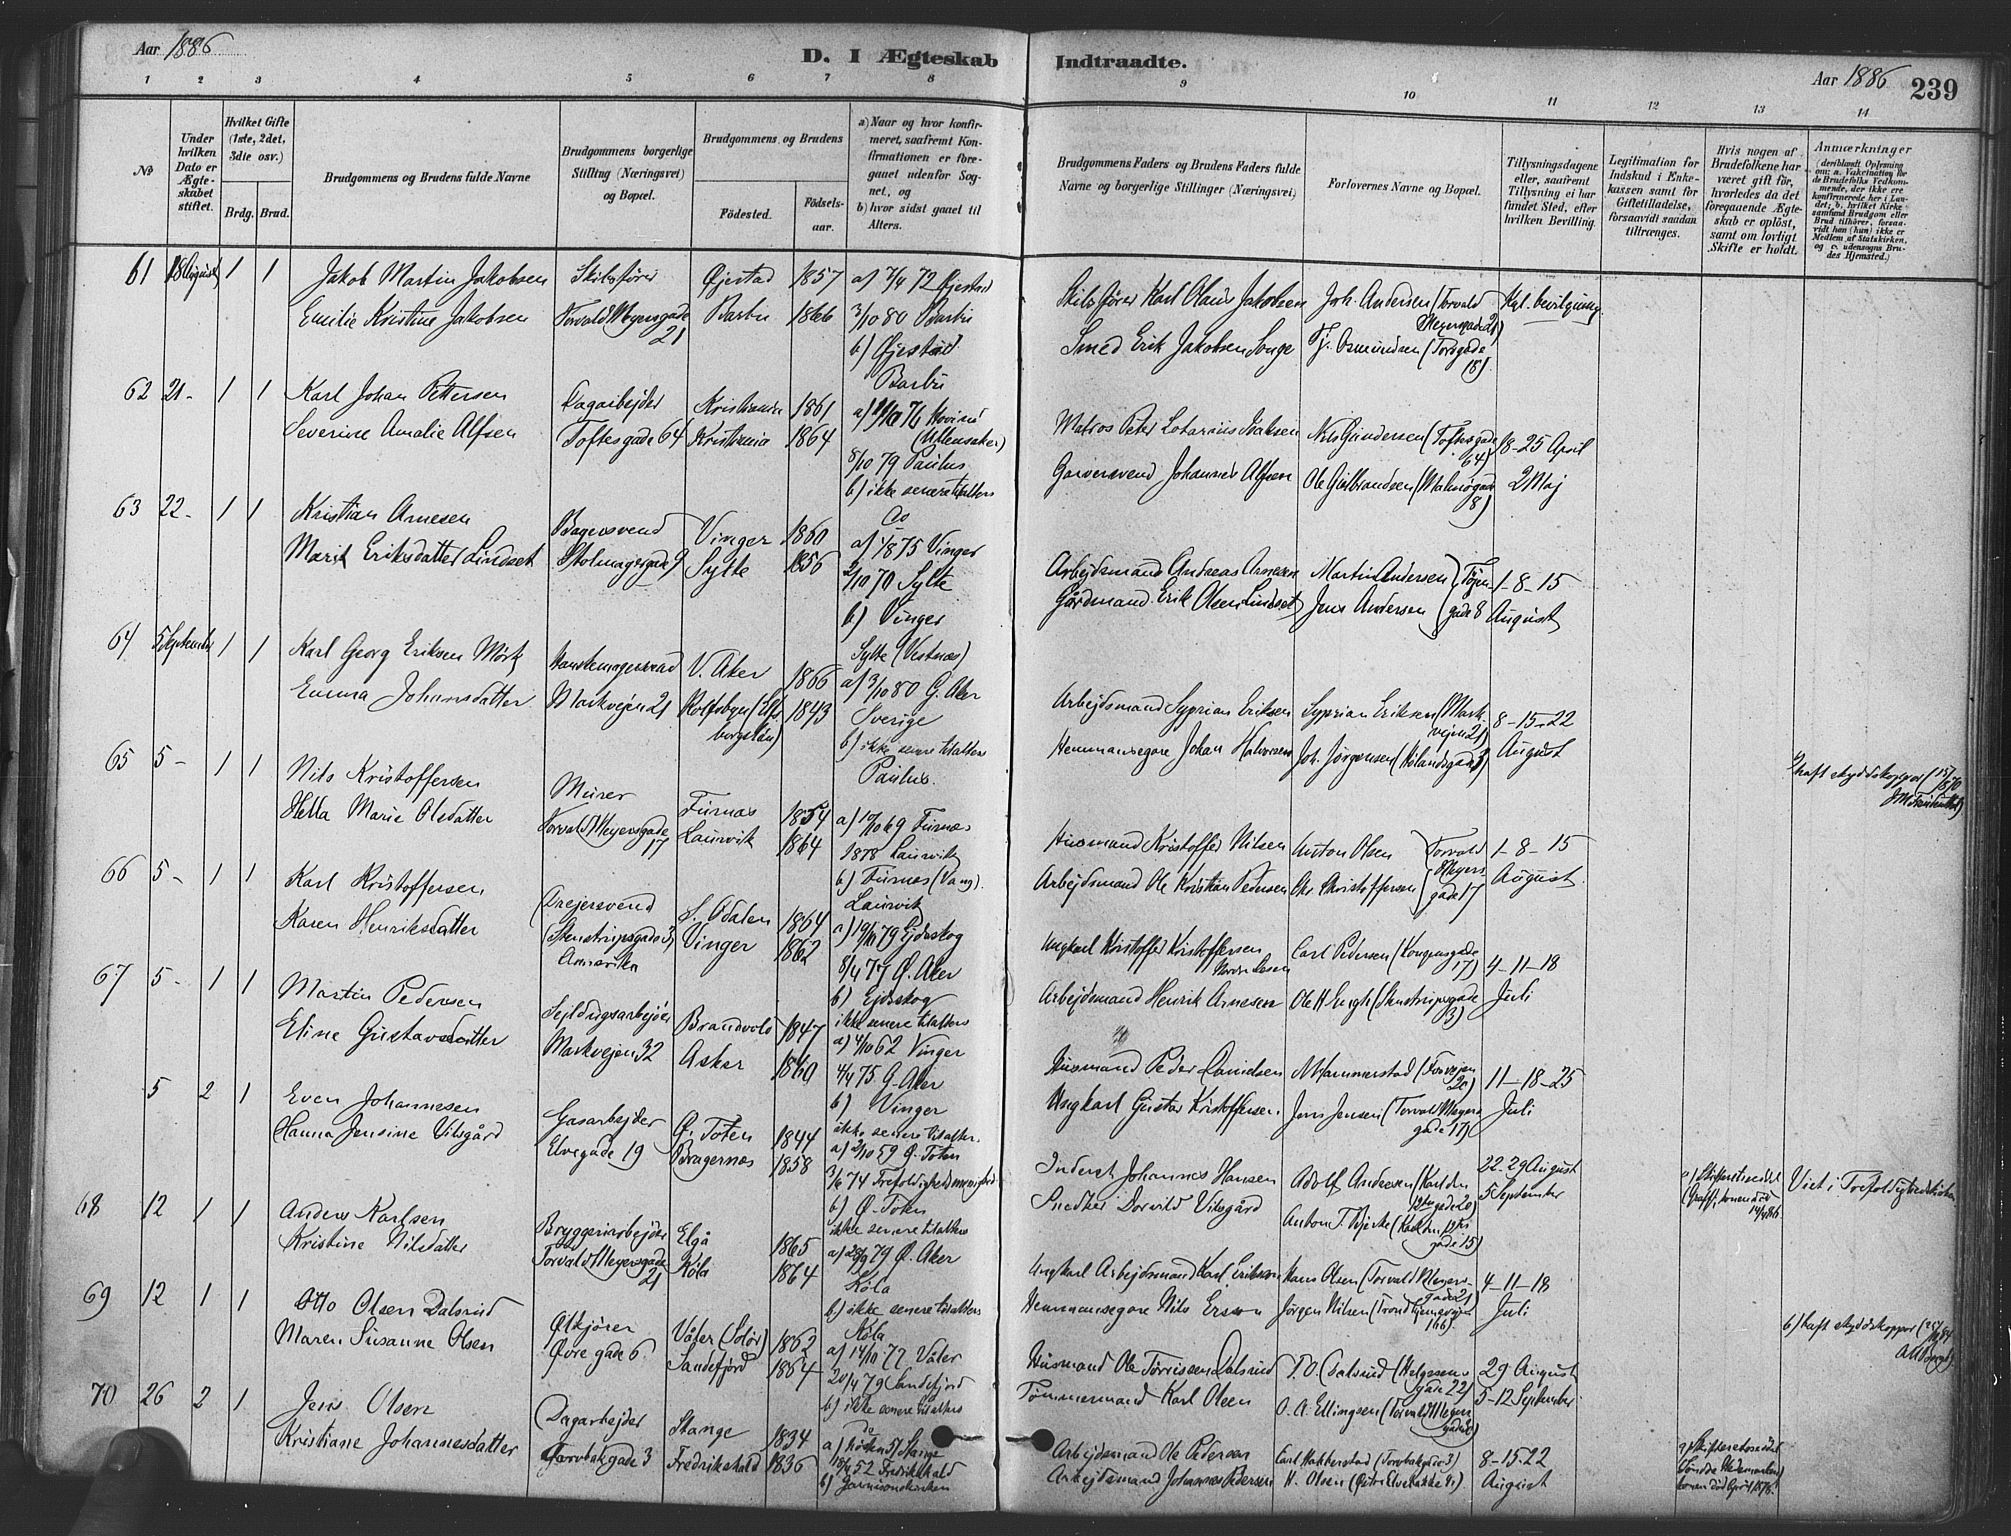 Aar 1886
D. I Ægteskab Indtraadte.
Aar 1886 239
1 2 3 4 5 6 7 8 9 10 11 12 13 14
No
Under hvilken Dato er Ægteskabet stiftet.
Hvilket Gifte (1ste, 2det, 3die osv.)
Brdg. Brud.
Brudgommens og Brudens fulde Navne
Brudgommens borgerlige Stilling (Næringsvei) og Bopæl.
Brudgommens og Brudens
Födested.
Födsels-aar.
a) Naar og hvor konfirmeret, saafremt Konfirmationen er foregaaet udenfor Sognet, og
b) hvor sidst gaaet til Alters.
Brudgommens Faders og Brudens Faders fulde Navne og borgerlige Stillinger (Næringsvei)
Forlovernes Navne og Bopæl.
Tillysningsdagene eller, saafremt Tillysning ei har fundet Sted, efter hvilken Bevilling.
Legitimation for Indskud i Enkekassen samt for Giftetilladelse, forsaavidt saadan tiltrænges.
Hvis nogen af Brudefolkene har været gift før, hvorledes da det foregaaende Ægteskab er oplöst, samt om lovligt Skifte er holdt.
Anmærkninger (deriblandt Oplysning om: a. Vakcination for de Brudefolks Vedkommende, der ikke ere konfirmerede her i Landet; b. hvilket Kirkesamfund Brudgom eller Brud tilhörer, forsaavidt han (hun) ikke er Medlem af Statskirken, og c. udensogns Brudes Hjemsted.)
61 18 August 1 1 Jakob Martin Jakobsen Skibsfører Øjestad 1857 a) 7/4 72 Øjestad Skibsfører Karl Olaus Jakobsen Joh. Andersen (Torvald Meyersgade 21) Kgl. bevilgning
Emilie Kristine Jakobsen Torvald Meyersgade 21 Barbu 1866 3/10 80 Barbu Smed Erik Jakobsen Songe Tj. Osmundsen (Torsgade 18)
b) Øjestad
Barbu
62 21 - 1 1 Karl Johan Pettersen Dagarbejder Kristiania 1861 a) 1/10 76 Hovind (Ullensaker) Matros Peter Lotarius Isaksen Nils Gundersen (Toftesgade 64) 18-25 April
Severine Amalie Alfsen Toftesgade 64 Kristiania 1864 5/10 79 Paulus Garversvend Johannes Alfsen Ole Gulbrandsen (Malmøgade 8) 2 Maj
b) ikke senere tilalters
63 22 - 1 1 Kristian Arnesen Bagersvend Vinger 1860 a) 1/8 75 Vinger Arbejdsmand Andreas Arnesen Martin Andersen (Tøjengade 8 1-8-15
Marit Eriksdatter Lindset Stolmagergade 9 Sylte 1856 2/10 70 Sylte Gårdmand Erik Olsen Lindset Jens Andersen August
b) Vinger
Sylte (Vestnæs)
64 5 September 1 1 Karl Georg Eriksen Mørk Hanskemagersvend V. Aker 1866 a) 3/10 80 G. Aker Arbejdsmand Syprian Eriksen Syprian Eriksen (Markvejen 21) 8-15-22
Emma Johansdatter Markvejen 21 Rolfsbyn (Elfsborgslän) 1843 Sverige Hemmansegare Johan Halvorsen Joh. Jørgensen (Hølandsgade 3) August
b) ikke senere tilalters
Paulus
haft skyddskoppor
65 5 - 1 1 Nils Kristoffersen Murer Furnæs 1854 a) 10/10 69 Furnæs Husmand Kristoffer Nilsen Anton Olsen (Torvald Meyersgade 17 1-8-15
Hella Marie Olsdatter Torvald Meyersgade 17 Laurvik 1864 1878 Laurvik Arbejdsmand Ole Kristian Pedersen Chr. Christoffersen August
b) Furnæs (Vang).
Laurvik
66 5 - 1 1 Karl Kristoffersen Drejersvend S. Odalen 1864 a) 19/10 79 Ejdsskog Ungkarl Kristoffer Kristoffersen Carl Pedersen (Kongensgade 17) 4-11-18
Karen Henriksdatter (Stenstrupsgade 3) Amerika Vinger 1862 8/4 77 Ø. Aker Arbejdsmand Henrik Arnesen Ole H. Engh (Stenstrupsgade 3) Juli
b) Ejdsskog
ikke senere tilalters
67 5 - 1 1 Martin Pedersen Sejldugsarbejder Brandvold 1847 a) 4/10 62 Vinger Husmand Peder Danielsen M. Hammerstad (Tøjvejen 20) 11-18-25
Eline Gustavsdatter Markvejen 32 Asker 1860 4/4 75 G. Aker Ungkarl Gustav Kristoffersen Jens Jensen (Torvald Meyersgade 17) Juli
b) Vinger
ikke senere tilalters
5 2 1 Even Johannesen Gasarbejder Ø. Toten 1844 a) 2/10 59 Ø. Toten Inderst Johannes Hansen Adolf Andresen (Karl den 12tes gade 20) 22-29 August
Hanna Jensine Vilsgård Elvegade 19 Bragernæs 1858 3/6 74 Trefoldighedsmenighed Snedker Dorvild Vilsgård Anton T. Bjerke (Karl den 12tes gade 15) 5 September
b) Ø. Toten
ikke senere tilalters
Viet i Trefoldighedskirken
68 12 1 1 Anders Karlsen Bryggeriarbejder Elgå 1865 a) 28/9 79 Ø. Aker Ungkarl Arbejdsmand Karl Eriksen Hans Olsen (Torvald Meyersgade 21) 4-11-18
Kristine Nilsdatter Torvald Meyersgade 21 Köla 1864 Köla Hemmansegare Nils Ersson Jørgen Nilsen (Trondhjemsvejen 166) Juli
b) ikke senere tilalters
Köla
b) haft skyddskoppor
69 12 1 1 Otto Olsen Dalsrud Ølkjører Våler (Solør) 1862 a) 14/10 77 Våler Husmand Ole Torrissen Dalsrud T. O. Dalsrud (Helgesensgade 22) 29 August
Maren Susanne Olsen Øvregade 6. Sandefjord 1864 20/4 79 Sandefjord Tømmermand Karl Olsen O. A. Ellingsen (Torvald Meyersgade) 5-12 September
b) ikke senere tilalters
70 26 2 1 Jens Olsen Dagarbejder Stange 1834 a) Høsten 51 Stange Arbejdsmand Ole Pedersen Carl Hakkerstad (Torvbakgade 3) 8-15-22
Kristiane Johannesdatter Torvbakgade 3 Fredrikshald 1836 52 Fredrikshald Arbejdsmand Johannes Pedersen H. Olsen August
b) Garnisonskirken